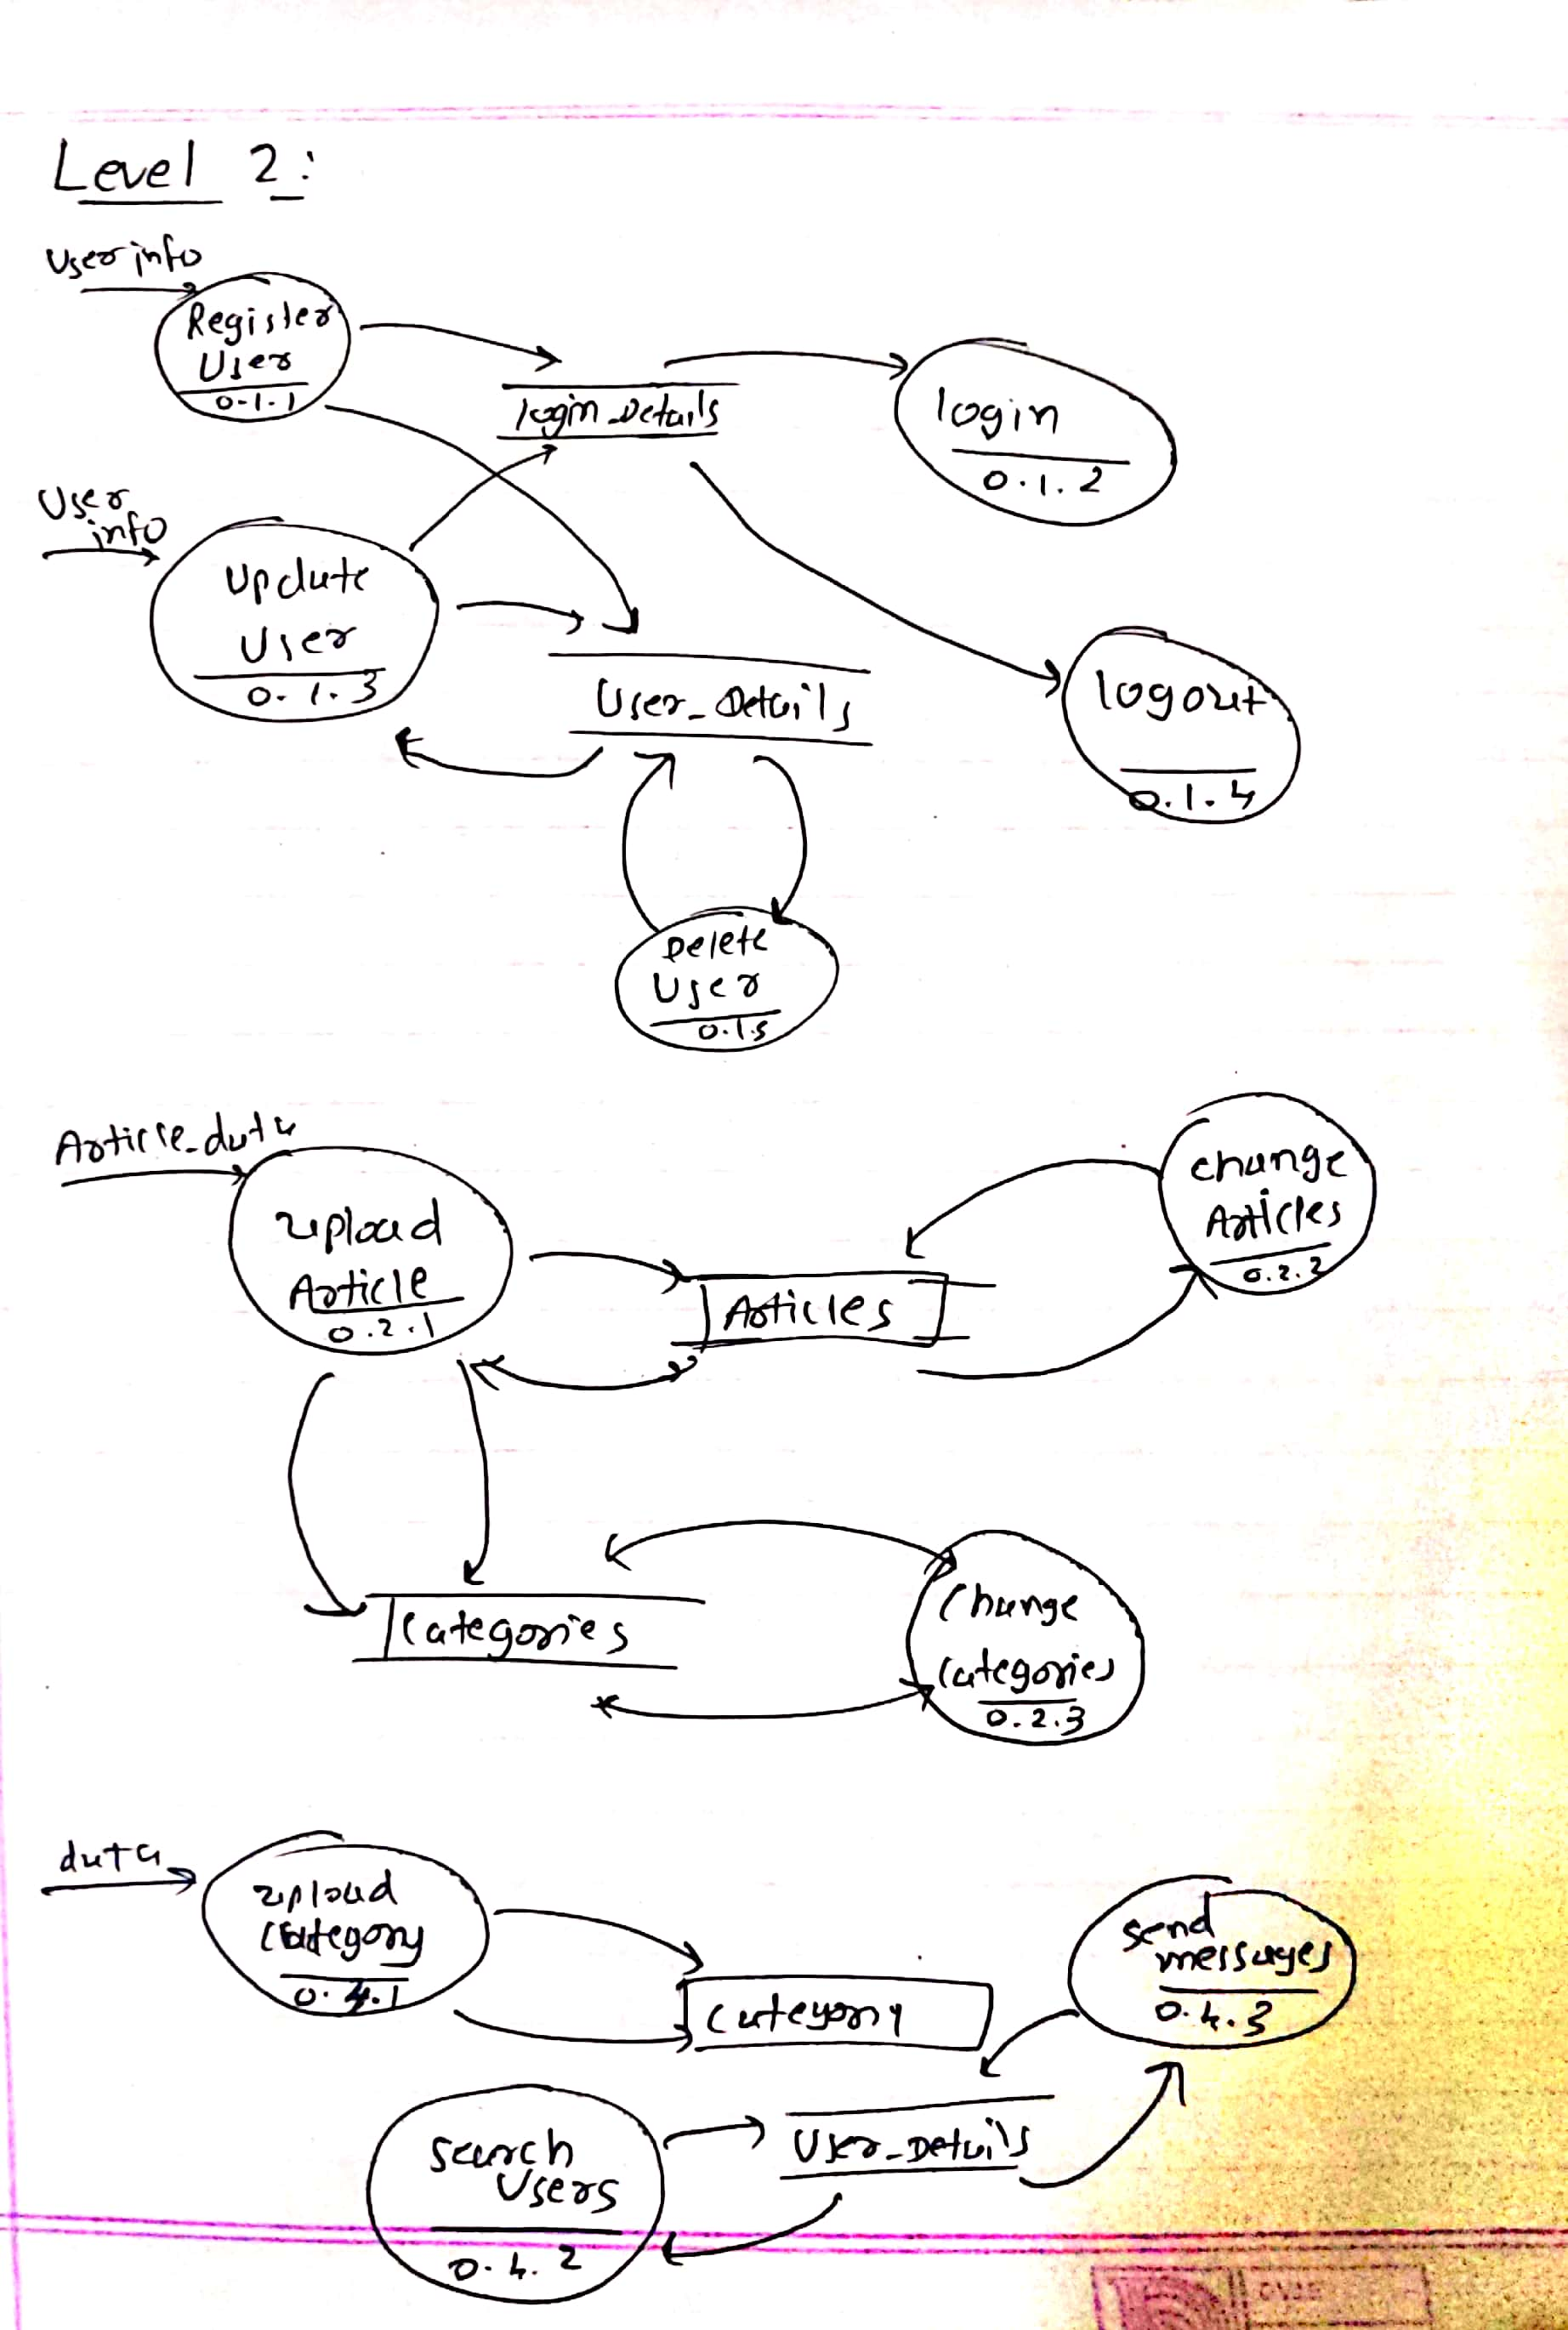 Level 2:
User info
Register
User
0.1.1
login_Details
login
0.1.2
User
info
Update
User
0.1.3
User_Details
logout
0.1.4
Delete
User
0.1.5
Article_data
upload
Article
0.2.1
Articles
change
Articles
0.2.2
Categories
Change
Categories
0.2.3
data
upload
Category
0.4.1
Category
send
messages
0.4.3
Search
Users
0.4.2
User_Details